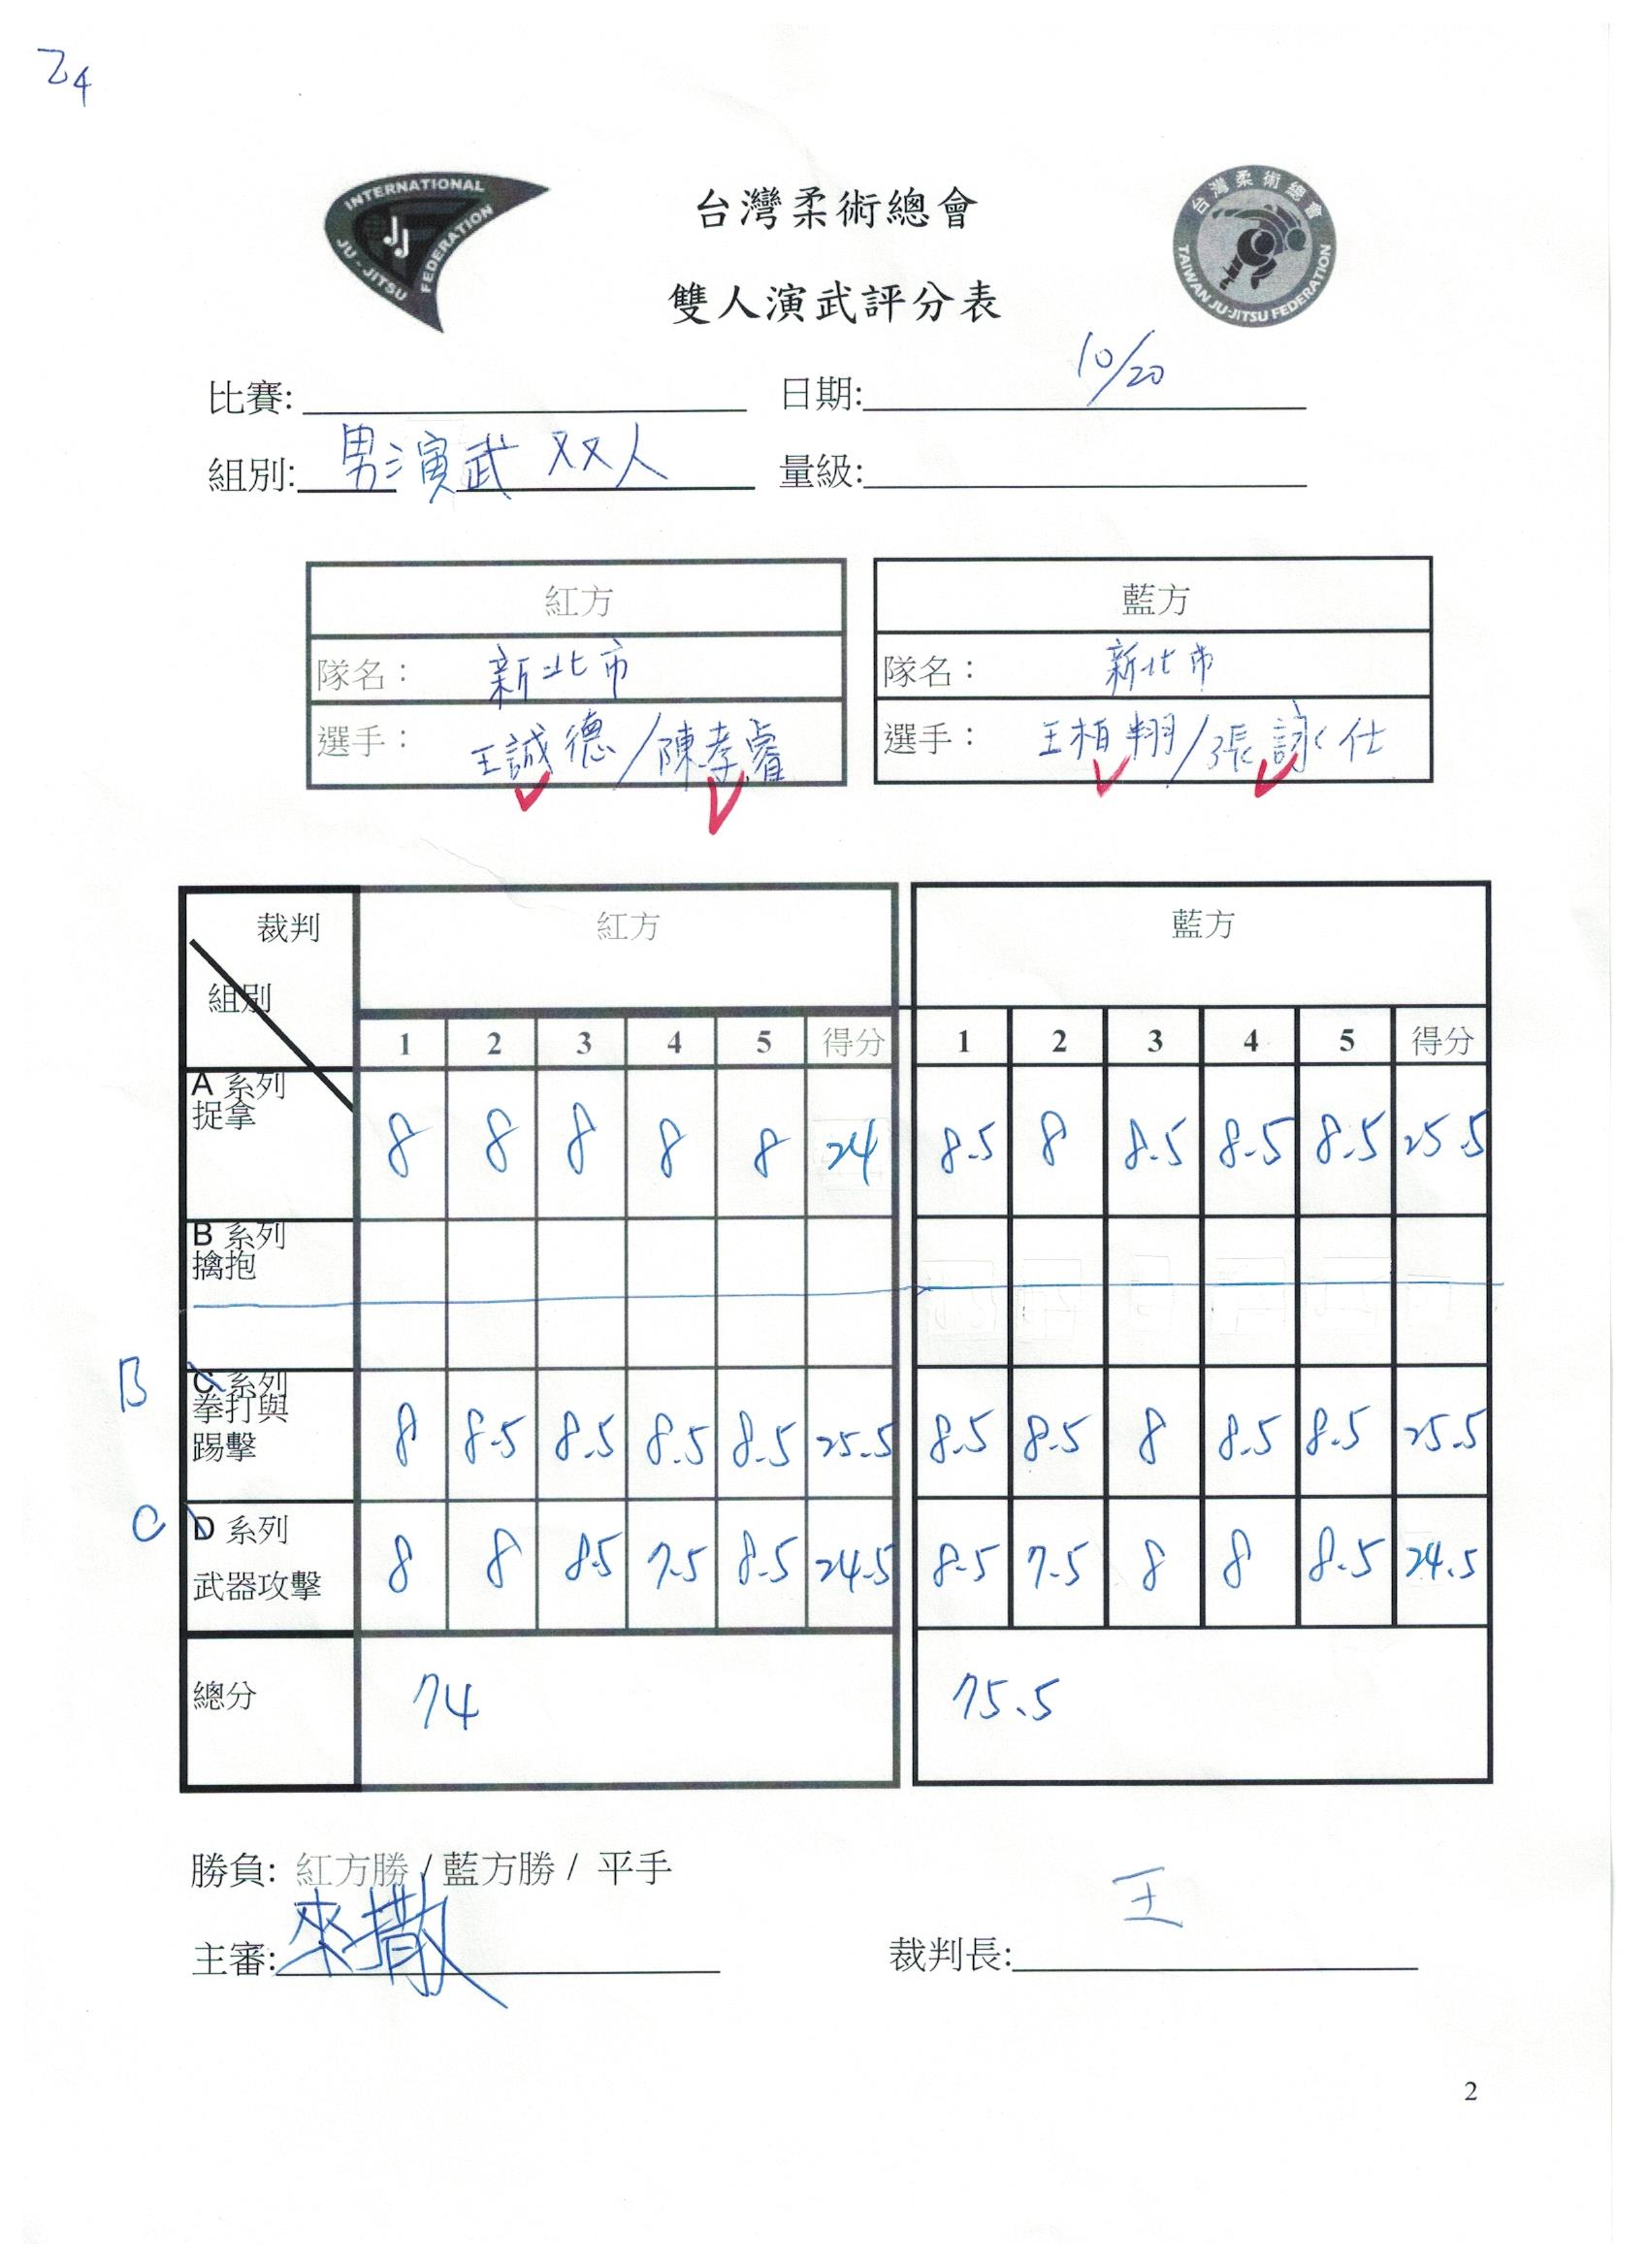 Z4
INTERNATIONAL
JU-JITSU
FEDERATION
JJ
台灣柔術總會
台灣柔術總會
TAIWAN JU-JITSU FEDERATION
雙人演武評分表
比賽: 日期: 10/20
組別: 男演武 双人 量級:
紅方 藍方
隊名： 新北市 隊名： 新北市
選手： 王誠德/陳孝睿 選手： 王柏翔/張詠仕
裁判 紅方 藍方
組別
1 2 3 4 5 得分 1 2 3 4 5 得分
A 系列
捉拿
8 8 8 8 8 24 8.5 8 8.5 8.5 8.5 25.5
B 系列
擒抱
B C 系列
拳打與
踢擊
8 8.5 8.5 8.5 8.5 25.5 8.5 8.5 8 8.5 8.5 25.5
C D 系列
武器攻擊
8 8 8.5 7.5 8.5 24.5 8.5 7.5 8 8 8.5 24.5
總分 74 75.5
勝負: 紅方勝 / 藍方勝 / 平手
主審: 來撒 裁判長: 王
2